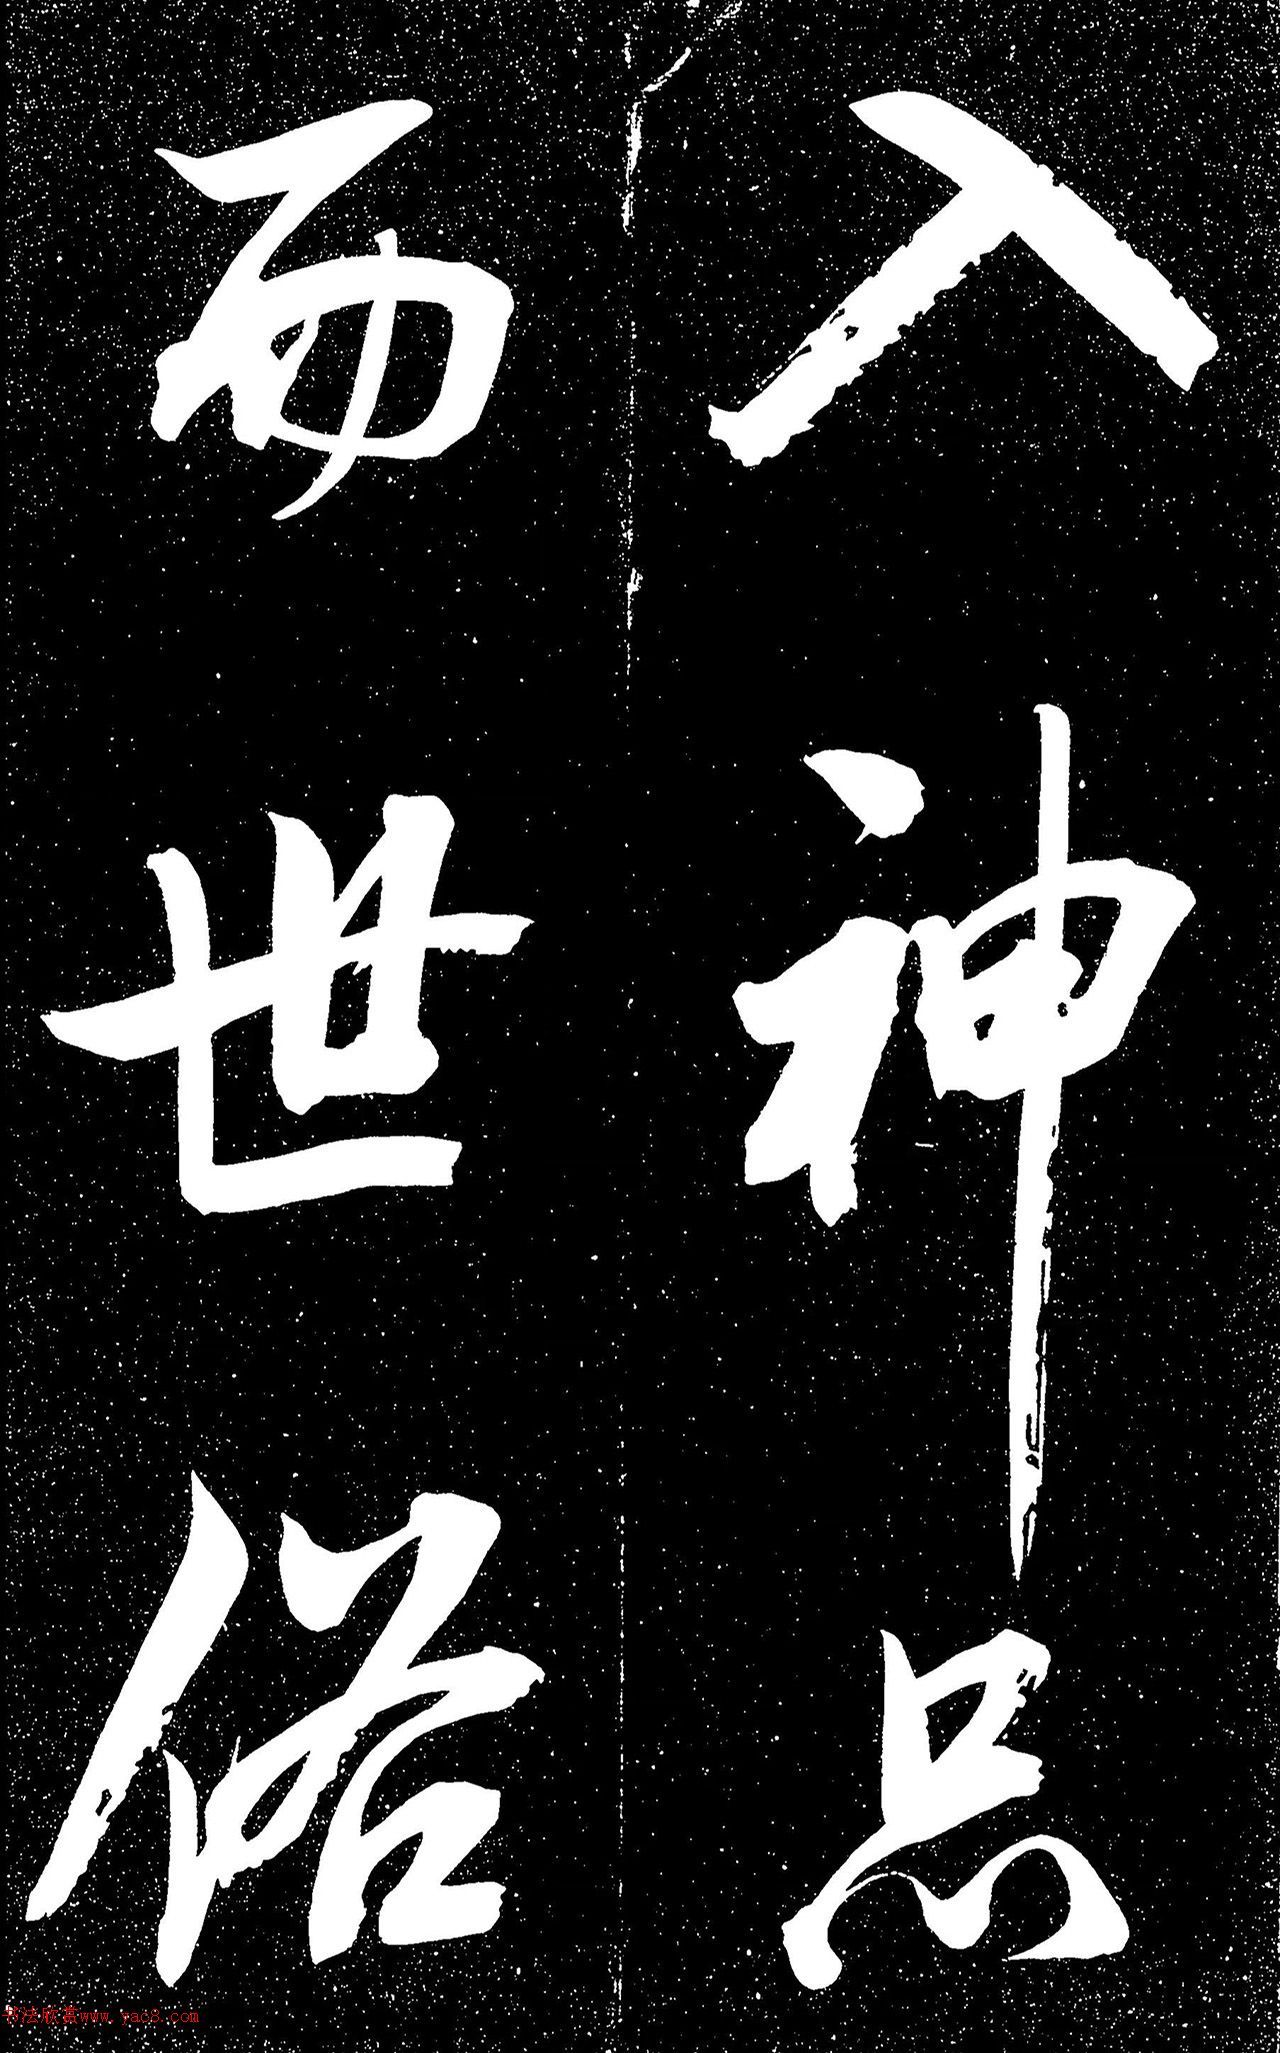 入神只
而世俗
书法欣赏www.yac8.com